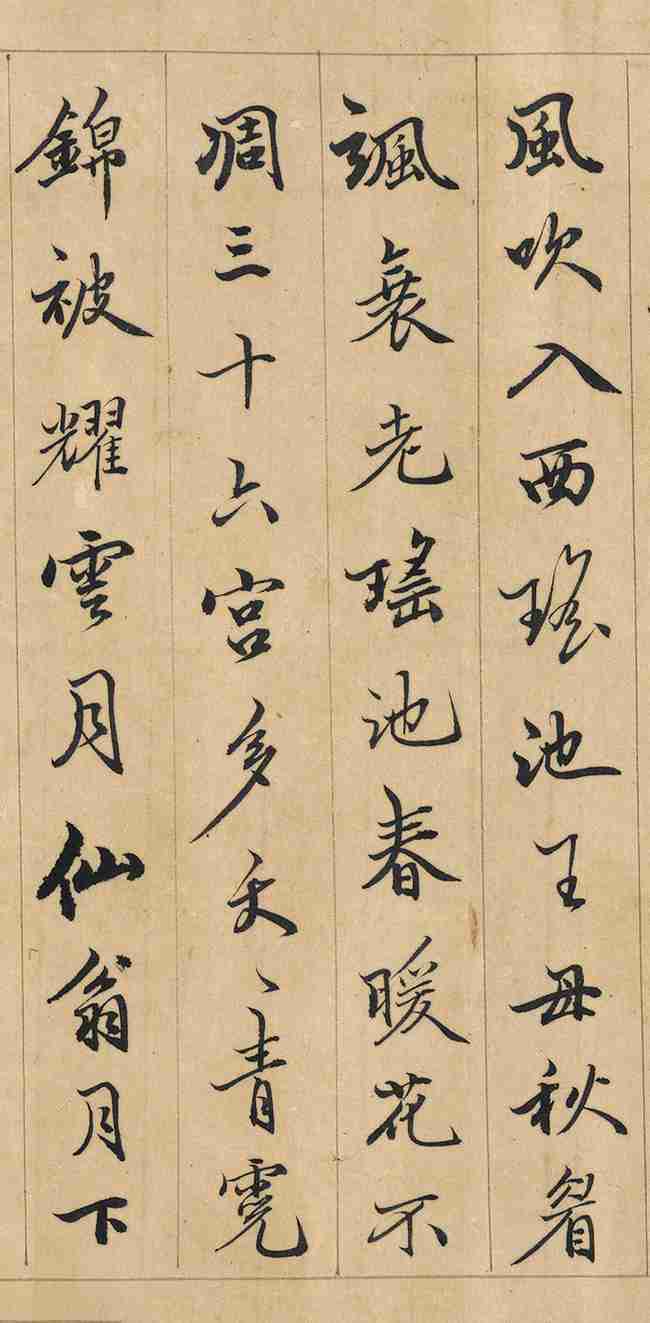 風吹入西瑤池王母秋
颯衰老瑤池春暖花不
凋三十六宮多夭〻青霓
錦被耀雲月仙翁月下